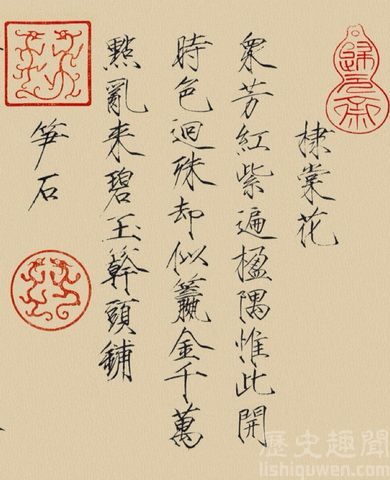 棣棠花
衆芳紅紫遍楹隅惟此開
時色迥殊却似籯金千萬
點亂来碧玉簳頭鋪
笋石
歷史趣聞
lishiquwen.com